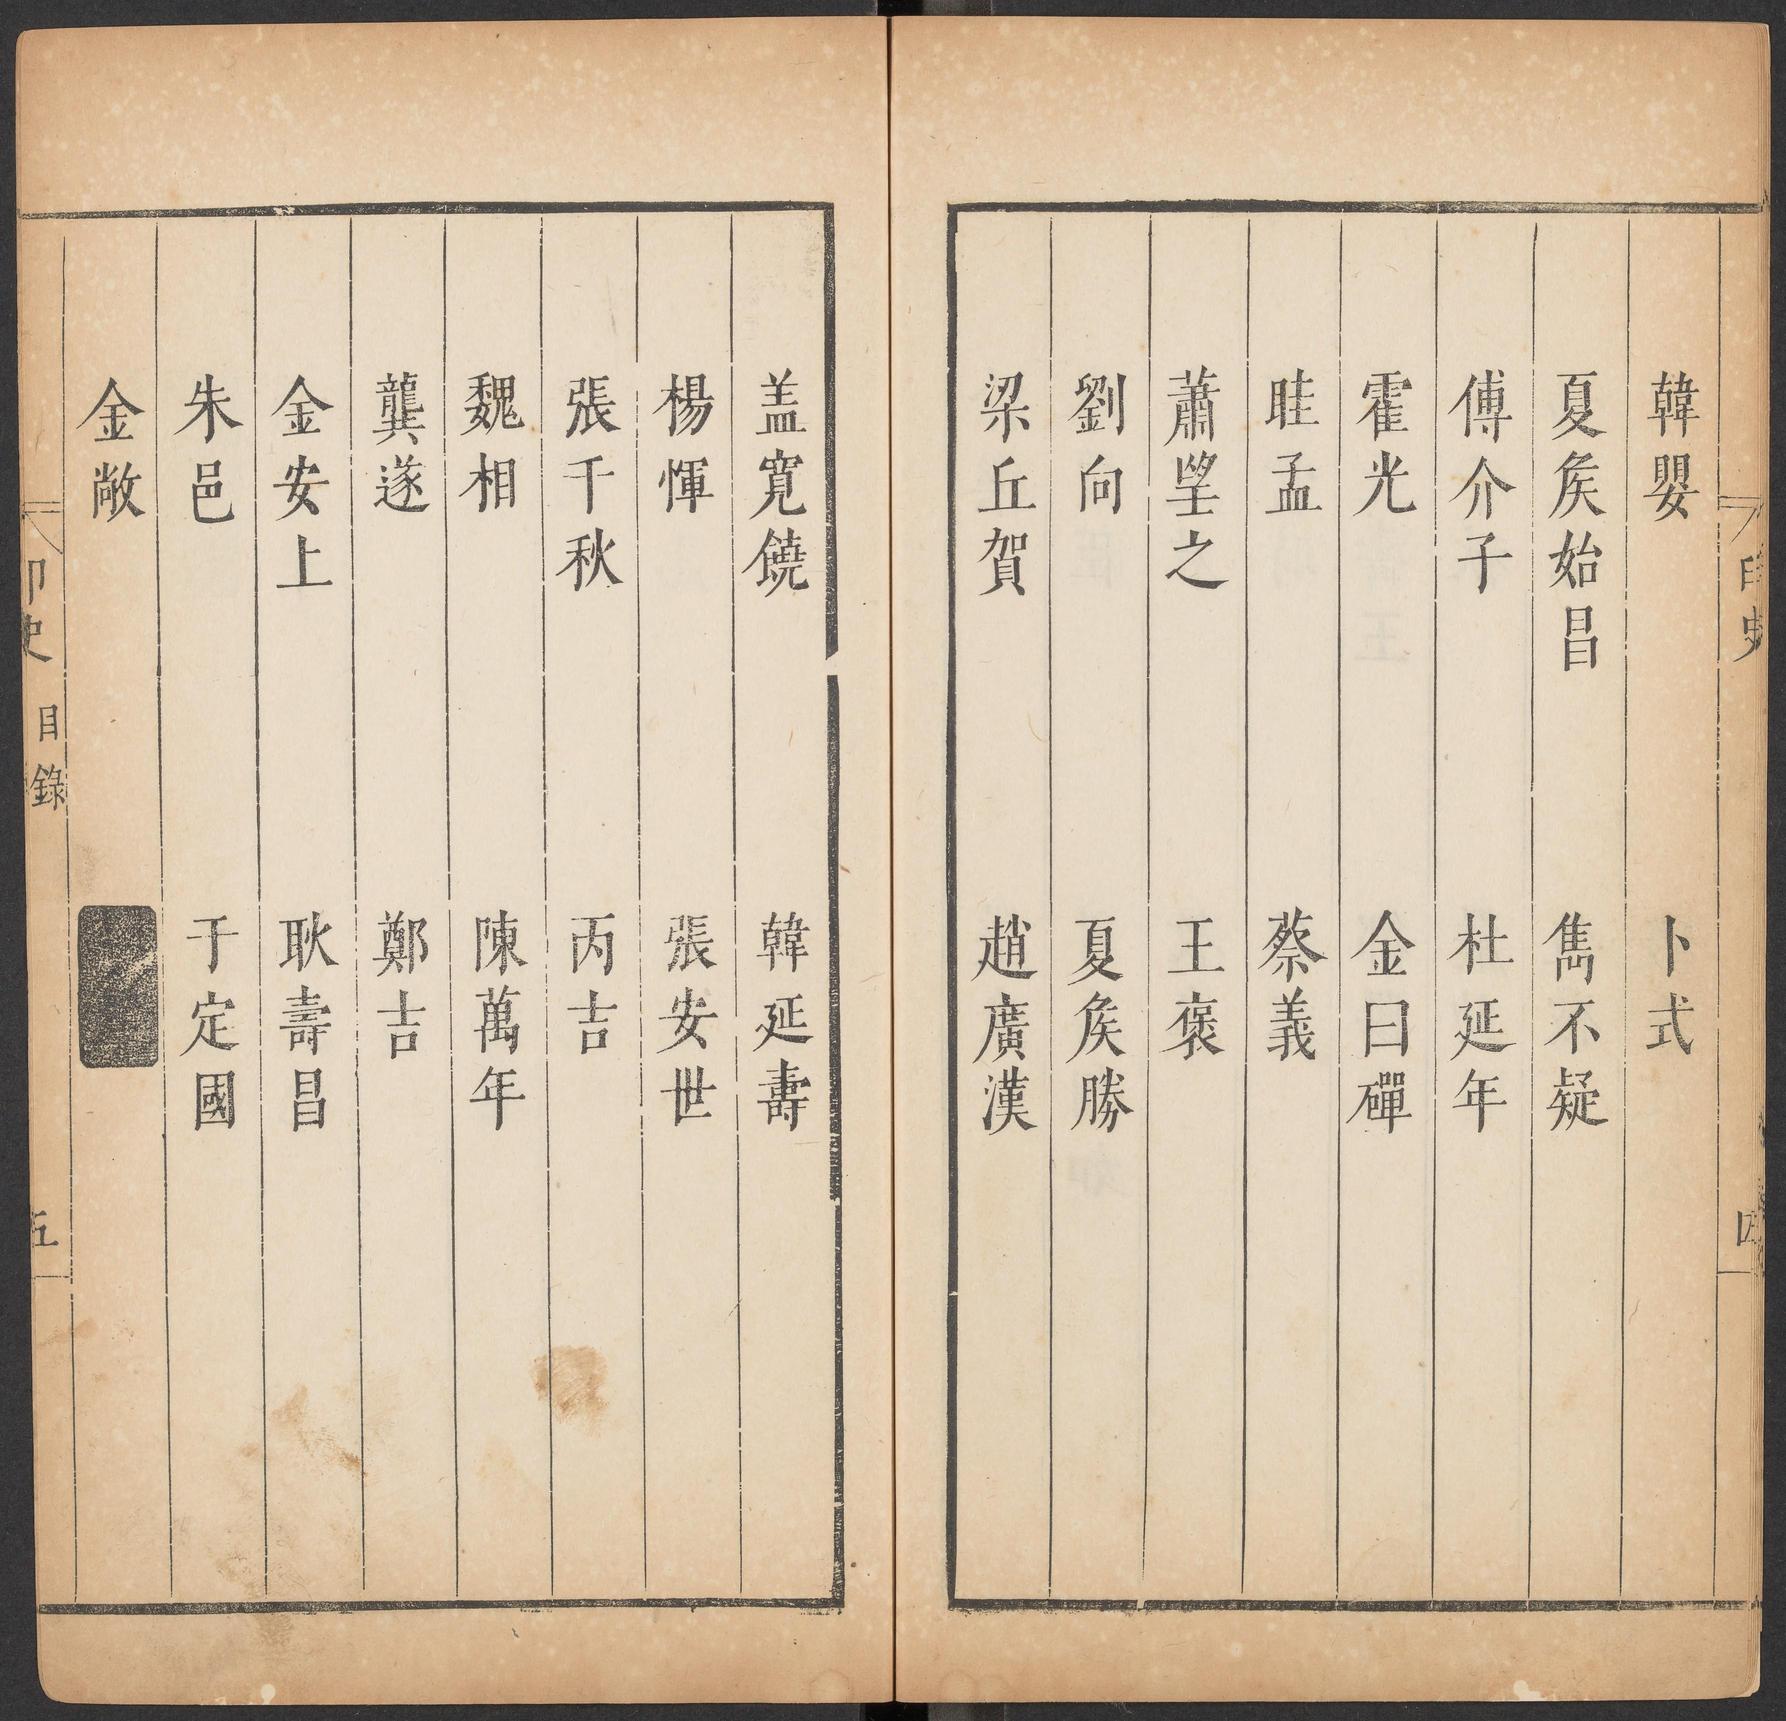 韓嬰 卜式
夏矦始昌 雋不疑
傅介子 杜延年
霍光 金日磾
眭孟 蔡義
蕭望之 王褒
劉向 夏矦勝
梁丘賀 趙廣漢
盖寬饒 韓延壽
楊惲 張安世
張千秋 丙吉
魏相 陳萬年
龔遂 鄭吉
金安上 耿壽昌
朱邑 于定國
金敞
印史 目錄 五